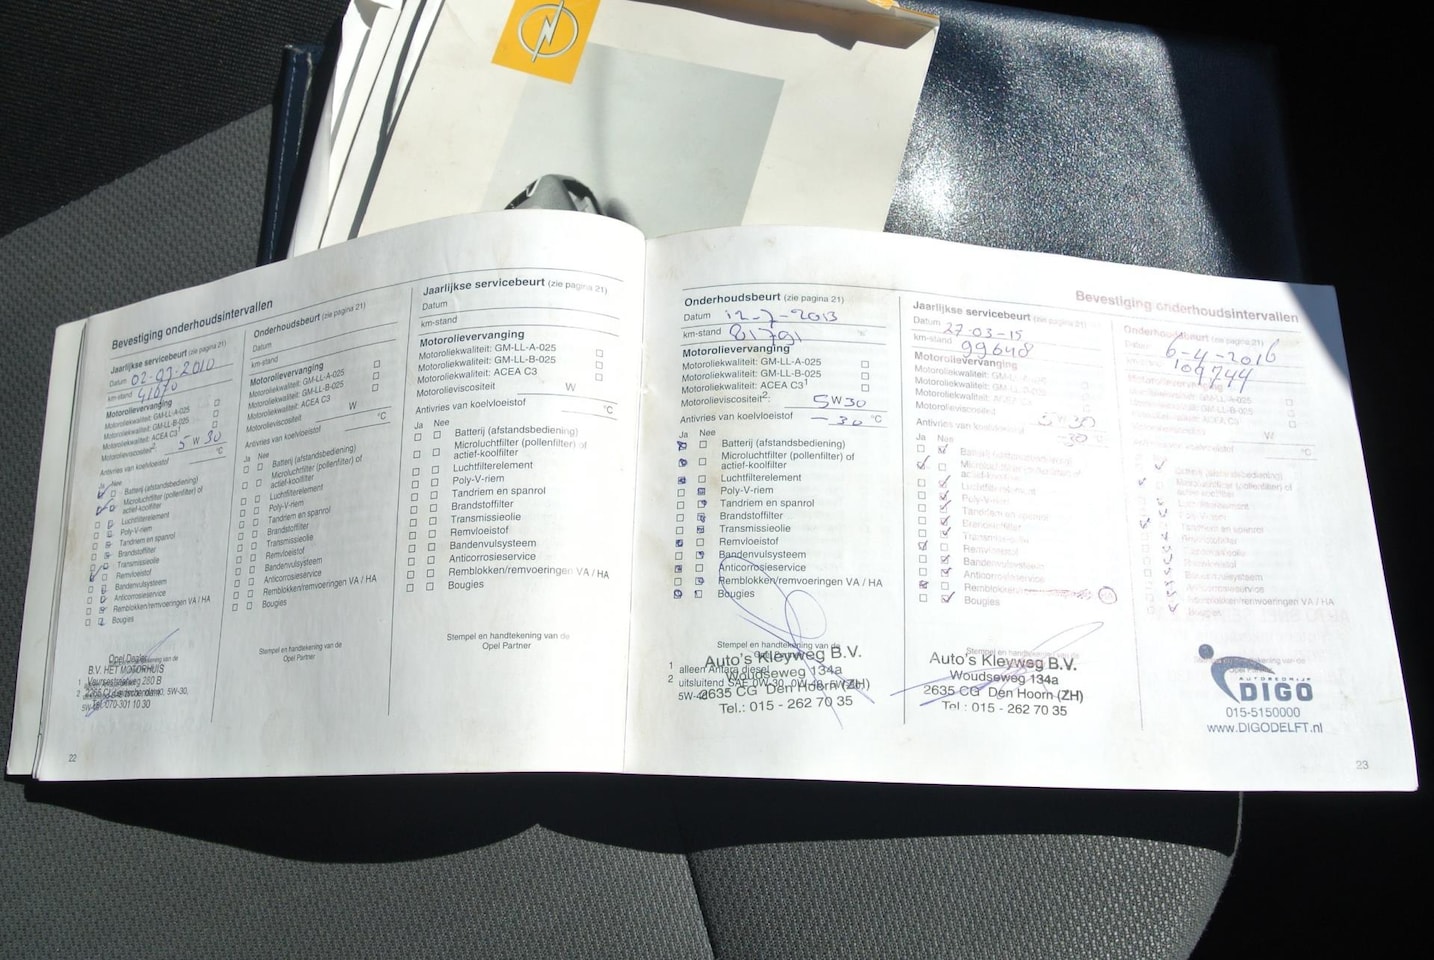 Bevestiging onderhoudsintervallen
Jaarlijkse servicebeurt (zie pagina 21)
Datum 02-09-2010
km-stand
Motorolievervanging
Motoroliekwaliteit: GM-LL-A-025
Motoroliekwaliteit: GM-LL-B-025
Motoroliekwaliteit: ACEA C3¹
Motorolieviscositeit²: 5 W 30
Antivries van koelvloeistof °C
Ja Nee
Batterij (afstandsbediening)
Microluchtfilter (pollenfilter) of
actief-koolfilter
Luchtfilterelement
Poly-V-riem
Tandriem en spanrol
Brandstoffilter
Transmissieolie
Remvloeistof
Bandenvulsysteem
Anticorrosieservice
Remblokken/remvoeringen VA / HA
Bougies
Opel Dealer
B.V. HET MOTORHUIS
Tel. 070-301 10 30
22
Onderhoudsbeurt (zie pagina 21)
Datum
km-stand
Motorolievervanging
Motoroliekwaliteit: GM-LL-A-025
Motoroliekwaliteit: GM-LL-B-025
Motoroliekwaliteit: ACEA C3
Motorolieviscositeit W
Antivries van koelvloeistof °C
Ja Nee
Batterij (afstandsbediening)
Microluchtfilter (pollenfilter) of
actief-koolfilter
Luchtfilterelement
Poly-V-riem
Tandriem en spanrol
Brandstoffilter
Transmissieolie
Remvloeistof
Bandenvulsysteem
Anticorrosieservice
Remblokken/remvoeringen VA / HA
Bougies
Stempel en handtekening van de
Opel Partner
Jaarlijkse servicebeurt (zie pagina 21)
Datum
km-stand
Motorolievervanging
Motoroliekwaliteit: GM-LL-A-025
Motoroliekwaliteit: GM-LL-B-025
Motoroliekwaliteit: ACEA C3
Motorolieviscositeit W
Antivries van koelvloeistof °C
Ja Nee
Batterij (afstandsbediening)
Microluchtfilter (pollenfilter) of
actief-koolfilter
Luchtfilterelement
Poly-V-riem
Tandriem en spanrol
Brandstoffilter
Transmissieolie
Remvloeistof
Bandenvulsysteem
Anticorrosieservice
Remblokken/remvoeringen VA / HA
Bougies
Stempel en handtekening van de
Opel Partner
Onderhoudsbeurt (zie pagina 21)
Datum 12-7-2013
km-stand 81791
Motorolievervanging
Motoroliekwaliteit: GM-LL-A-025
Motoroliekwaliteit: GM-LL-B-025
Motoroliekwaliteit: ACEA C3¹
Motorolieviscositeit²: 5 W 30
Antivries van koelvloeistof 30 °C
Ja Nee
Batterij (afstandsbediening)
Microluchtfilter (pollenfilter) of
actief-koolfilter
Luchtfilterelement
Poly-V-riem
Tandriem en spanrol
Brandstoffilter
Transmissieolie
Remvloeistof
Bandenvulsysteem
Anticorrosieservice
Remblokken/remvoeringen VA / HA
Bougies
Stempel en handtekening van de
Auto's Kleyweg B.V.
Woudseweg 134a
2635 CG Den Hoorn (ZH)
Tel.: 015 - 262 70 35
1 alleen Antara diesel
2 uitsluitend SAE 0W-30, 0W-40, 5W-30,
5W-40
Bevestiging onderhoudsintervallen
Jaarlijkse servicebeurt (zie pagina 21)
Datum 27-03-15
km-stand 99648
Motorolievervanging
Motoroliekwaliteit: GM-LL-A-025
Motoroliekwaliteit:
Motoroliekwaliteit:
Motorolieviscositeit 5W30
Antivries van koelvloeistof -30 °C
Ja Nee
Batterij (afstandsbediening)
actief-koolfilter
Poly-V-riem
Tandriem en spanrol
Remvloeistof
Bandenvulsysteem
Anticorrosieservice
HA
Bougies
Auto's Kleyweg B.V.
Woudseweg 134a
2635 CG Den Hoorn (ZH)
Tel.: 015 - 262 70 35
Onderhoudsbeurt (zie pagina 21)
6-4-2016
109744
W
°C
VA / HA
Bougies
AUTOBEDRIJF
DIGO
015-5150000
www.DIGODELFT.nl
23